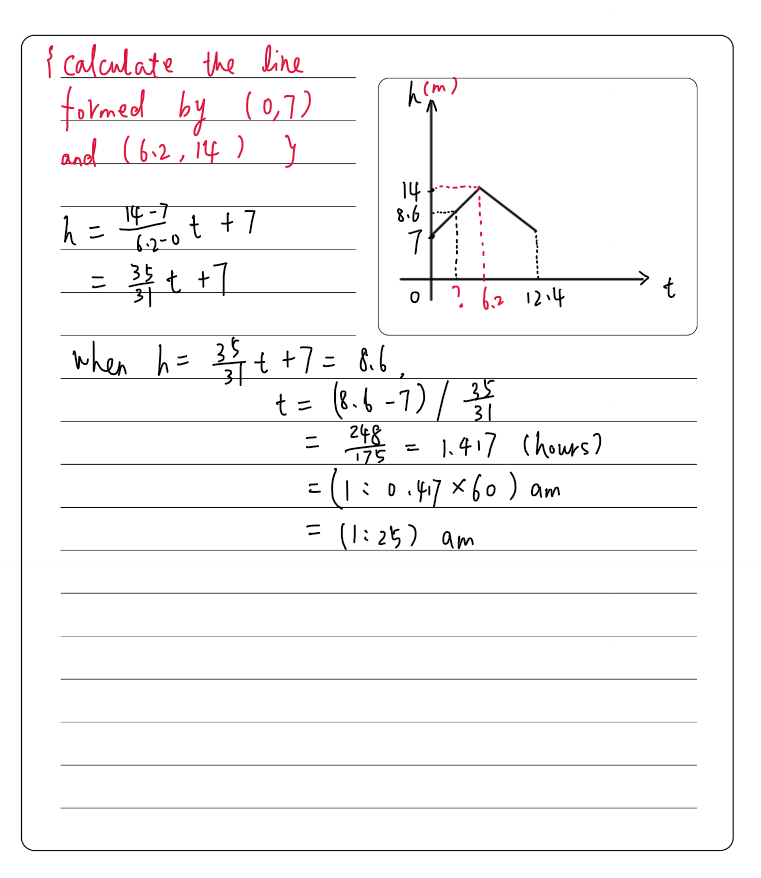 { calculate the line
formed by (0,7)
and (6.2, 14) }
h = \frac{14-7}{6.2-0} t + 7
= \frac{35}{31} t + 7
h (m)
14
8.6
7
0
?
6.2
12.4
t
when h = \frac{35}{31} t + 7 = 8.6,
t = (8.6 - 7) / \frac{35}{31}
= \frac{248}{175} = 1.417 (hours)
= (1 : 0.417 × 60) am
= (1:25) am